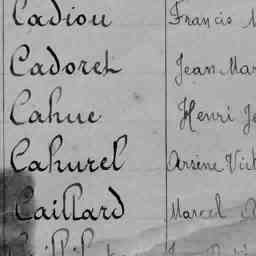 Cadiou Francis
Cadoret Jean Mar
Cahue Henri Je
Cahurel Arsène Vict
Caillard Marcel